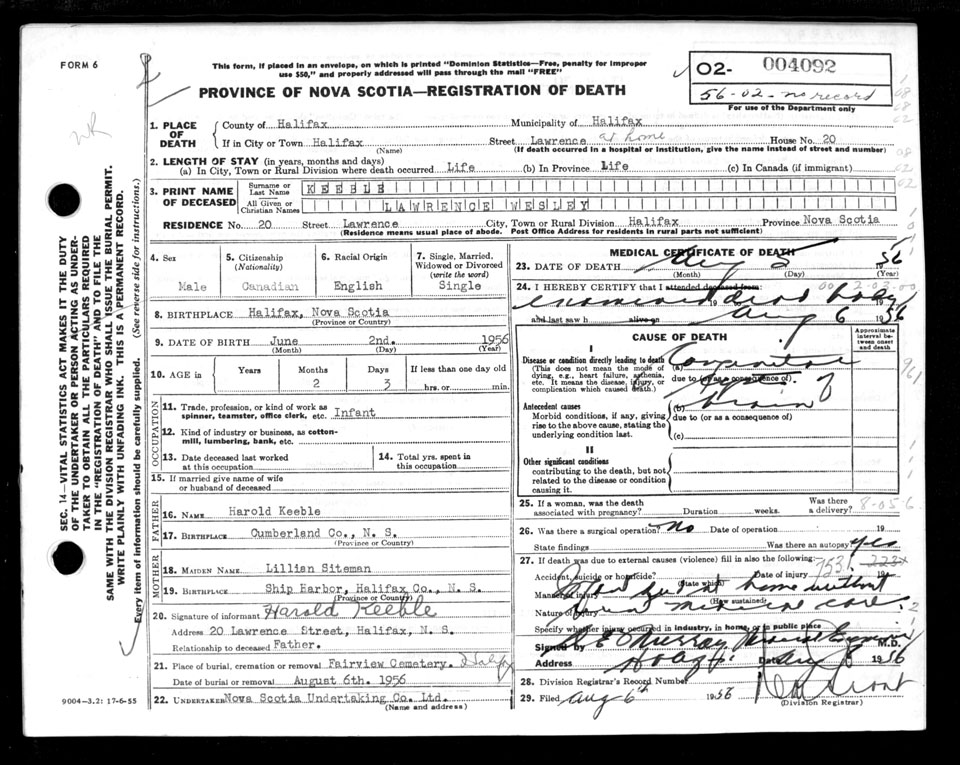 FORM 6
This form, if placed in an envelope, on which is printed "Dominion Statistics—Free, penalty for improper
use $50," and properly addressed will pass through the mail "FREE"
PROVINCE OF NOVA SCOTIA—REGISTRATION OF DEATH
O2- 004092
56-02- no record
For use of the Department only
NR
SEC. 14—VITAL STATISTICS ACT MAKES IT THE DUTY
OF THE UNDERTAKER OR PERSON ACTING AS UNDER-
TAKER TO OBTAIN ALL THE PARTICULARS REQUIRED
IN THE "REGISTRATION OF DEATH" AND TO FILE THE
SAME WITH THE DIVISION REGISTRAR WHO SHALL ISSUE THE BURIAL PERMIT.
WRITE PLAINLY WITH UNFADING INK. THIS IS A PERMANENT RECORD.
Every item of information should be carefully supplied. (See reverse side for instructions.)
1. PLACE OF DEATH County of Halifax Municipality of Halifax
If in City or Town Halifax Street Lawrence at home House No. 20
(Name) (If death occurred in a hospital or institution, give the name instead of street and number)
2. LENGTH OF STAY (in years, months and days)
(a) In City, Town or Rural Division where death occurred Life (b) In Province Life (c) In Canada (if immigrant)
3. PRINT NAME OF DECEASED Surname or Last Name KEEBLE
All Given or Christian Names LAWRENCE WESLEY
RESIDENCE No. 20 Street Lawrence City, Town or Rural Division Halifax Province Nova Scotia
(Residence means usual place of abode. Post Office Address for residents in rural parts not sufficient)
4. Sex Male
5. Citizenship (Nationality) Canadian
6. Racial Origin English
7. Single, Married, Widowed or Divorced (write the word) Single
8. BIRTHPLACE Halifax, Nova Scotia
(Province or Country)
9. DATE OF BIRTH June 2nd. 1956
(Month) (Day) (Year)
10. AGE in Years Months 2 Days 3 If less than one day old hrs. or min.
OCCUPATION
11. Trade, profession, or kind of work as
spinner, teamster, office clerk, etc. Infant
12. Kind of industry or business, as cotton-
mill, lumbering, bank, etc.
13. Date deceased last worked
at this occupation
14. Total yrs. spent in
this occupation
15. If married give name of wife
or husband of deceased
FATHER
16. NAME Harold Keeble
17. BIRTHPLACE Cumberland Co., N. S.
(Province or Country)
MOTHER
18. MAIDEN NAME Lillian Siteman
19. BIRTHPLACE Ship Harbor, Halifax Co., N. S.
(Province or Country)
20. Signature of informant Harold Keeble
Address 20 Lawrence Street, Halifax, N. S.
Relationship to deceased Father.
21. Place of burial, cremation or removal Fairview Cemetery. Halifax
Date of burial or removal August 6th. 1956
22. UNDERTAKER Nova Scotia Undertaking Co. Ltd.
(Name and address)
9004—3.2: 17-6-55
MEDICAL CERTIFICATE OF DEATH
23. DATE OF DEATH Aug 5 1956
(Month) (Day) (Year)
24. I HEREBY CERTIFY that I attended deceased from:
examined dead body 19
and last saw h alive on Aug 6 1956
CAUSE OF DEATH
Approximate interval between onset and death
I
Disease or condition directly leading to death
(This does not mean the mode of
dying, e.g., heart failure, asthenia,
etc. It means the disease, injury, or
complication which caused death.)
(a) Congenital
due to (or as a consequence of)
Antecedent causes
Morbid conditions, if any, giving
rise to the above cause, stating the
underlying condition last.
(b) brain
due to (or as a consequence of)
(c)
II
Other significant conditions
contributing to the death, but not
related to the disease or condition
causing it.
25. If a woman, was the death
associated with pregnancy? Duration weeks. Was there a delivery? 8-056
26. Was there a surgical operation? No Date of operation 19
State findings Was there an autopsy? Yes
27. If death was due to external causes (violence) fill in also the following:
Accident, suicide or homicide? (State which) Date of injury 19
753.1
Manner of injury at home without
(How sustained)
Nature of injury medical care.
Specify whether injury occurred in industry, in home, or in public place
Signed by Medical Examiner M.D.
Address Date Aug 1956
28. Division Registrar's Record Number
29. Filed Aug 6th 1956
(Division Registrar)